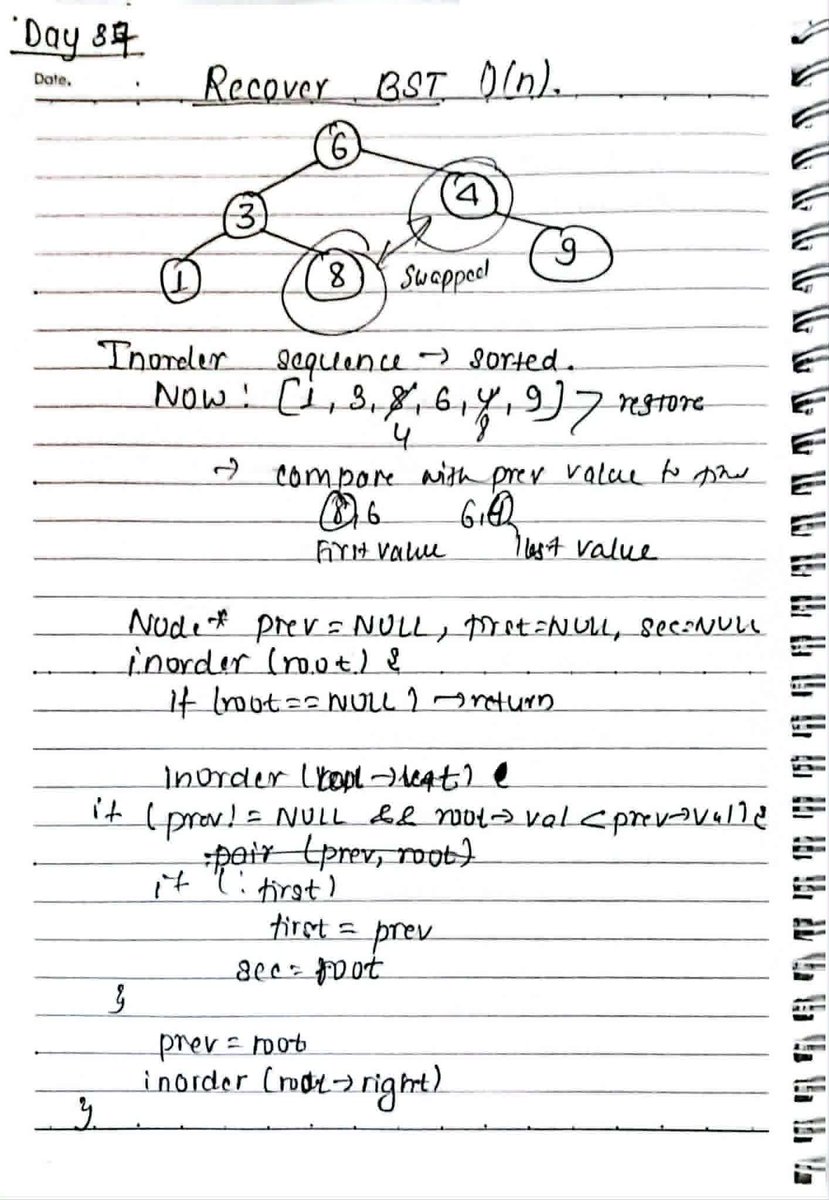 Day 87
Date.
Recover BST O(n).
6
3 4
1 8 9
swapped
Inorder sequence → sorted.
Now: [1, 3, 8, 6, 4, 9] → restore
4 8
→ compare with prev value to
8, 6 6, 4
First value last value
Node* prev = NULL, first=NULL, sec=NULL
inorder (root) {
If (root == NULL) → return
Inorder (root → left)
if (prev != NULL && root → val < prev → val) {
pair (prev, root)
if (! first)
first = prev
sec = root
}
prev = root
inorder (root → right)
}